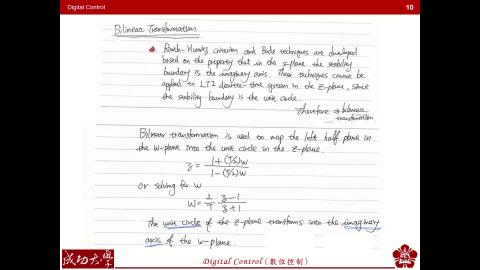 Digital Control
10
Bilinear Transformation
Routh-Hurwitz criterion and Bode techniques are developed
based on the property that in the s-plane the stability
boundary is the imaginary axis. These techniques cannot be
applied to LTI discrete-time system in the z-plane, since
the stability boundary is the unit circle.
Therefore → bilinear
transformation
Bilinear transformation is used to map the left half plane in
the w-plane into the unit circle in the z-plane.
z = 1+(T/2)w / 1-(T/2)w
or solving for w
w = 2/T z-1 / z+1
The unit circle of the z-plane transforms into the imaginary
axis of the w-plane.
成功大學
Digital Control (數位控制)